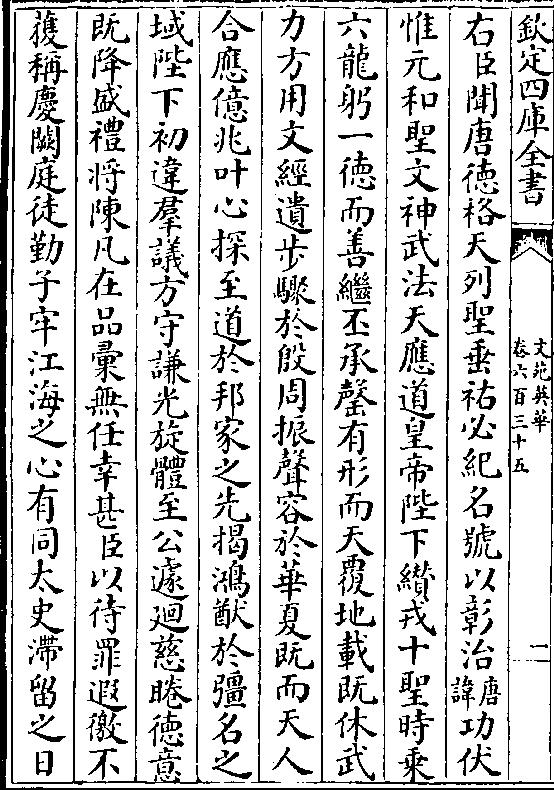 欽定四庫全書
文苑英華
卷六百三十五
二
右臣聞唐德格天列聖垂祐必紀名號以彰治唐諱功伏
惟元和聖文神武法天應道皇帝陛下纘戎十聖時乗
六龍躬一德而善繼丕承罄有形而天覆地載既休武
力方用文經遺步驟於殷周振聲容於華夏既而天人
合應億兆叶心探至道於邦家之先揭鴻猷於彊名之
域陛下初違羣議方守謙光旋體至公遽廻慈睠德意
既降盛禮将陳凡在品彚無任幸甚臣以待罪遐徼不
䕶稱慶闕庭徒勤子牢江海之心有同太史滯留之日